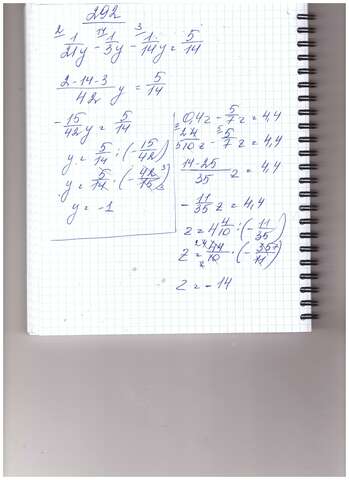 292
2 1/21 y - 14 1/3 y - 3 1/14 y = 5/14
2-14-3/42 y = 5/14
-15/42 y = 5/14
y = 5/14 : (-15/42)
y = 5/14 · (-42/15)
y = -1
0,4z - 5/7 z = 4,4
2/5 z - 5/7 z = 4,4
14-25/35 z = 4,4
-11/35 z = 4,4
z = 4 4/10 : (-11/35)
z = 44/10 · (-35/11)
z = -14